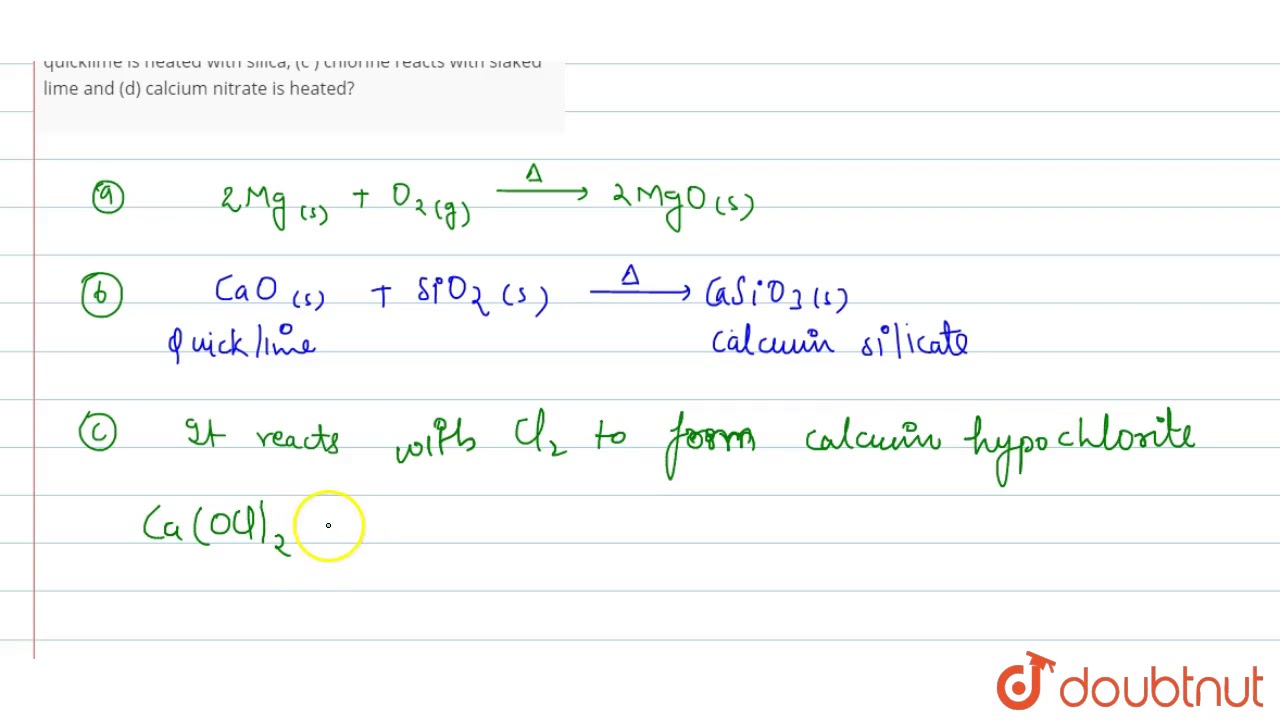 quicklime is heated with silica, (c ) chlorine reacts with slaked
lime and (d) calcium nitrate is heated?
(a) 2Mg(s) + O2(g) Δ→ 2MgO(s)
(b) CaO(s) + SiO2(s) Δ→ CaSiO3(s)
Quicklime calcium silicate
(c) It reacts with Cl2 to form calcium hypochlorite
Ca(OCl)2
doubtnut